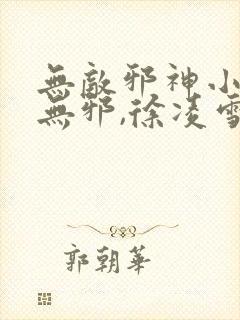 無敵邪神小
無邪,徐凌雪
郭朝華